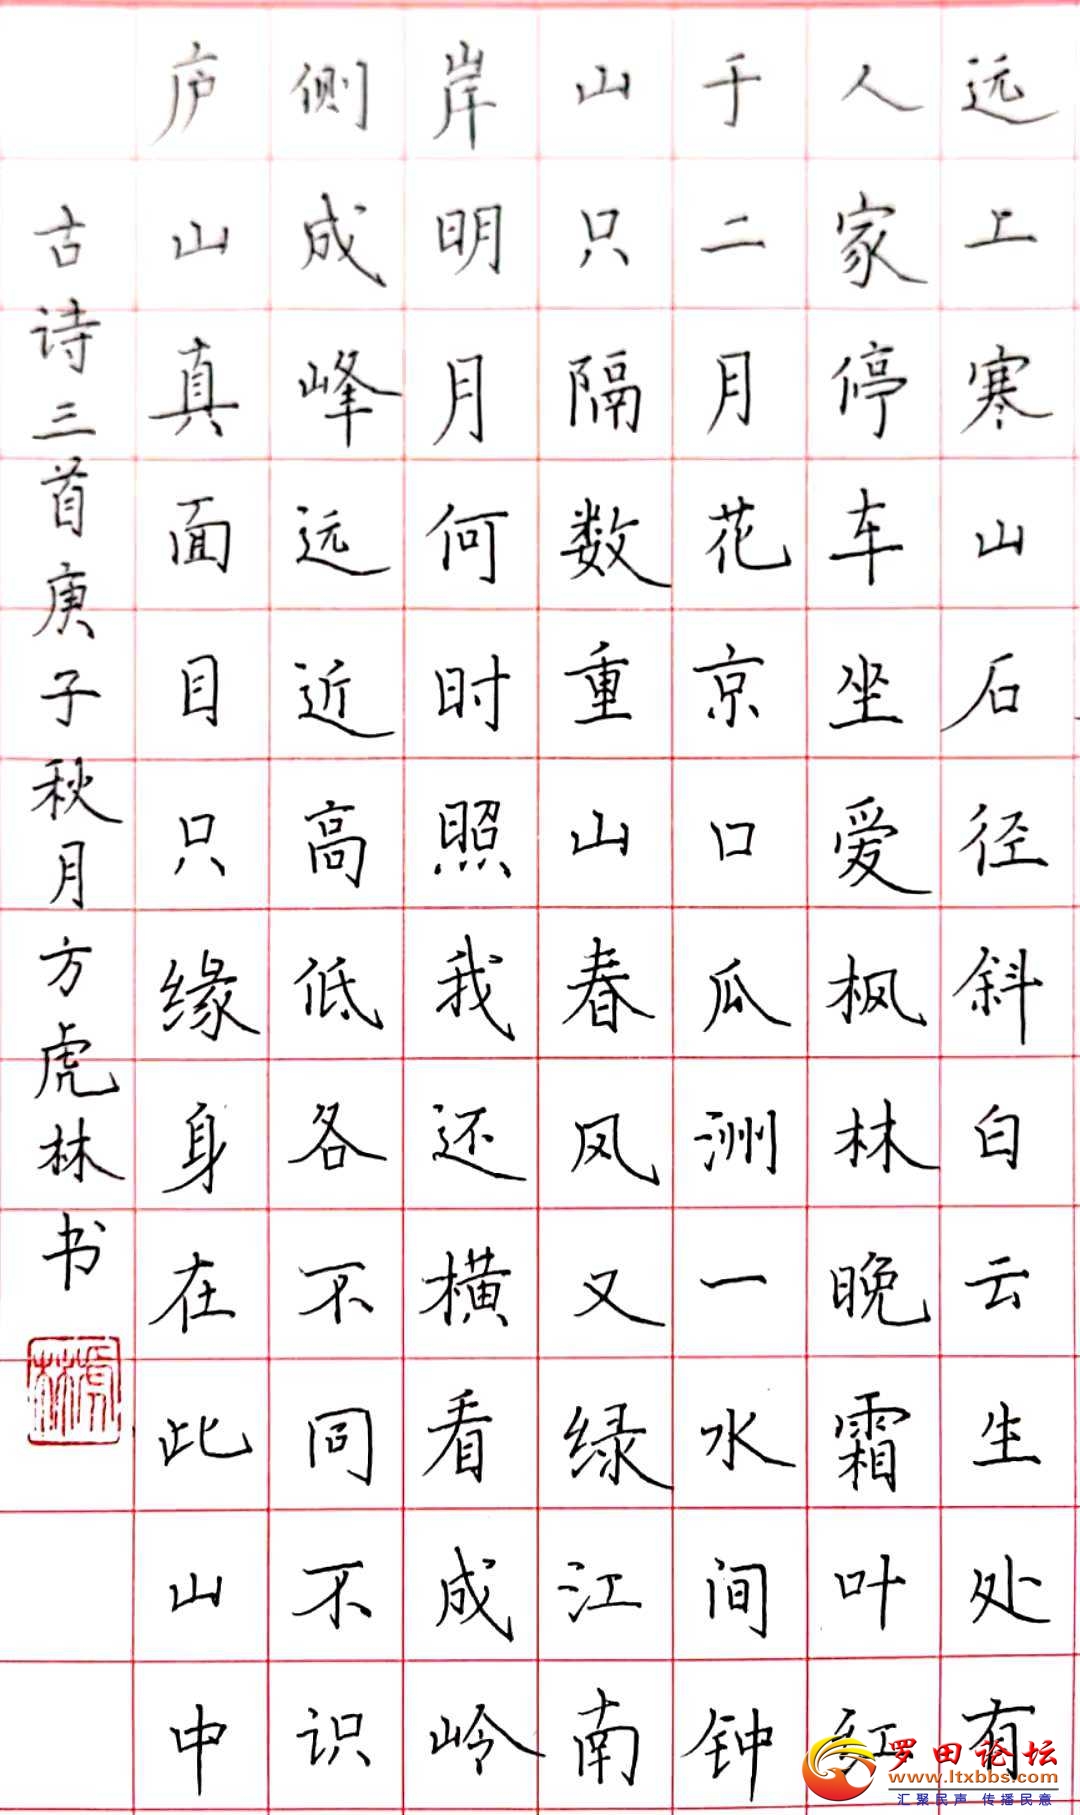 远上寒山石径斜白云生处有
人家停车坐爱枫林晚霜叶红
于二月花京口瓜洲一水间钟
山只隔数重山春风又绿江南
岸明月何时照我还横看成岭
侧成峰远近高低各不同不识
庐山真面目只缘身在此山中
古诗三首庚子秋月方虎林书
虎林
罗田论坛
www.ltxbbs.com
汇聚民声 传播民意